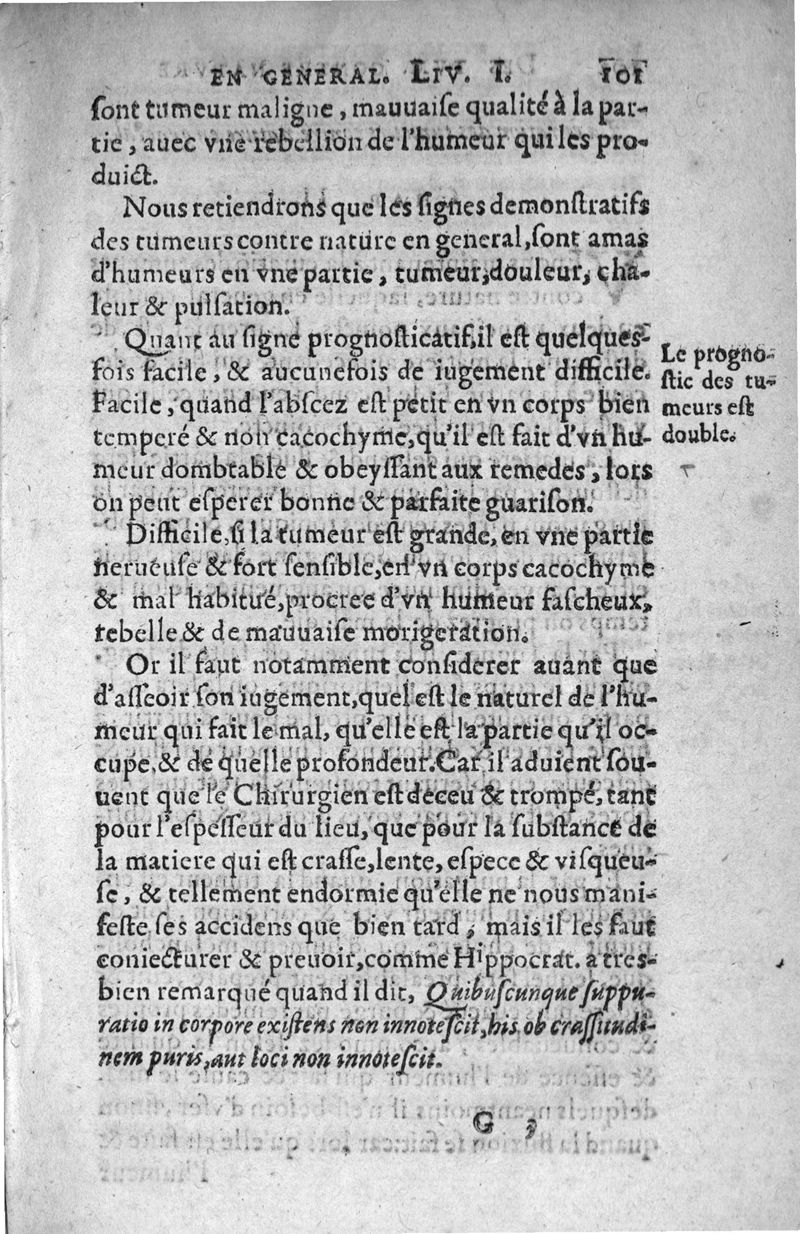 EN GENERAL. LIV. I. 101
ſont tumeur maligne, mauuaiſe qualité à la par-
tie, auec vne rebellion de l'humeur qui les pro-
duict.
Nous retiendrons que les ſignes demonſtratifs
des tumeurs contre nature en general, ſont amas
d'humeurs en vne partie, tumeur, douleur, cha-
leur & pulſation.
Quant au ſigne prognoſticatif, il eſt quelques-
fois facile, & aucunefois de iugement difficile.
Facile, quand l'abſcez eſt petit en vn corps bien
temperé & non cacochyme, qu'il eſt fait d'vn hu-
meur dombtable & obeyſſant aux remedes, lors
on peut eſperer bonne & parfaite guariſon.
Le progno-
ſtic des tu-
meurs eſt
double.
Difficile, ſi la tumeur eſt grande, en vne partie
nerueuſe & fort ſenſible, en vn corps cacochyme
& mal habitué, procree d'vn humeur faſcheux,
rebelle & de mauuaiſe morigeration.
Or il faut notamment conſiderer auant que
d'aſſeoir ſon iugement, quel eſt le naturel de l'hu-
meur qui fait le mal, qu'elle eſt la partie qu'il oc-
cupe, & de quelle profondeur. Car il aduient ſou-
uent que le Chirurgien eſt deceu & trompé, tant
pour l'eſpeſſeur du lieu, que pour la ſubſtance de
la matiere qui eſt craſſe, lente, eſpece & viſqueu-
ſe, & tellement endormie qu'elle ne nous mani-
feſte ſes accidens que bien tard, mais il les faut
coniecturer & preuoir, comme Hippocrat. a tres-
bien remarqué quand il dit, Quibuſcunque ſuppu-
ratio in corpore exiſtens non innoteſcit, his ob craſſitudi-
nem puris, aut loci non innoteſcit.
G 3